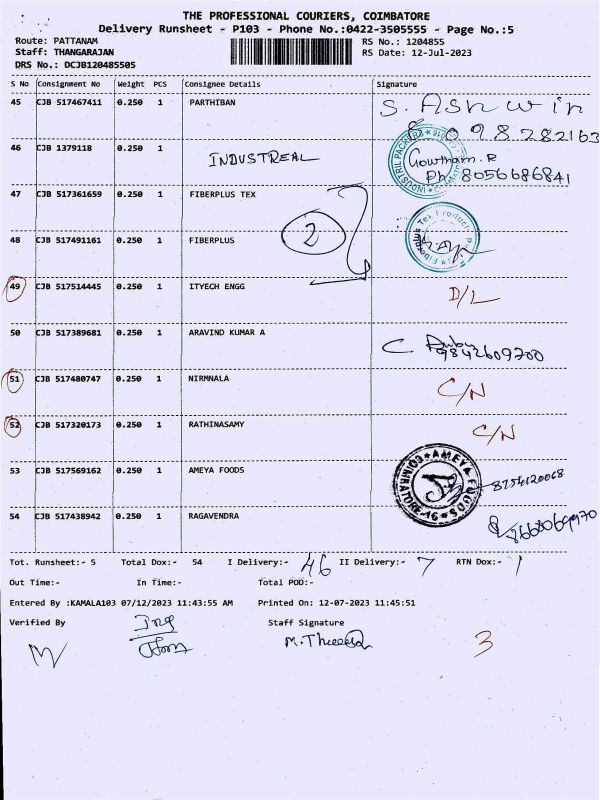 THE PROFESSIONAL COURIERS, COIMBATORE
Delivery Runsheet - P103 - Phone No.:0422-3505555 - Page No.:5
Route: PATTANAM
RS No.: 1204855
Staff: THANGARAJAN
RS Date: 12-Jul-2023
DRS No.: DCJB120485505
S No Consignment No Weight PCS Consignee Details Signature
45 CJB 517467411 0.250 1 PARTHIBAN S. Ashwin
46 CJB 1379118 0.250 1 INDUSTREAL
Gowtham. R
Ph. 8056686841
47 CJB 517361659 0.250 1 FIBERPLUS TEX
2
48 CJB 517491161 0.250 1 FIBERPLUS
49 CJB 517514445 0.250 1 ITYECH ENGG D/L
50 CJB 517389681 0.250 1 ARAVIND KUMAR A
9842609700
51 CJB 517480747 0.250 1 NIRMNALA C/N
52 CJB 517320173 0.250 1 RATHINASAMY C/N
53 CJB 517569162 0.250 1 AMEYA FOODS
AMEYA FOODS COIMBATORE-16
54 CJB 517438942 0.250 1 RAGAVENDRA
Tot. Runsheet:- 5 Total Dox:- 54 I Delivery:- 46 II Delivery:- 7 RTN Dox:- 1
Out Time:- In Time:- Total POD:-
Entered By :KAMALA103 07/12/2023 11:43:55 AM Printed On: 12-07-2023 11:45:51
Verified By Staff Signature
3